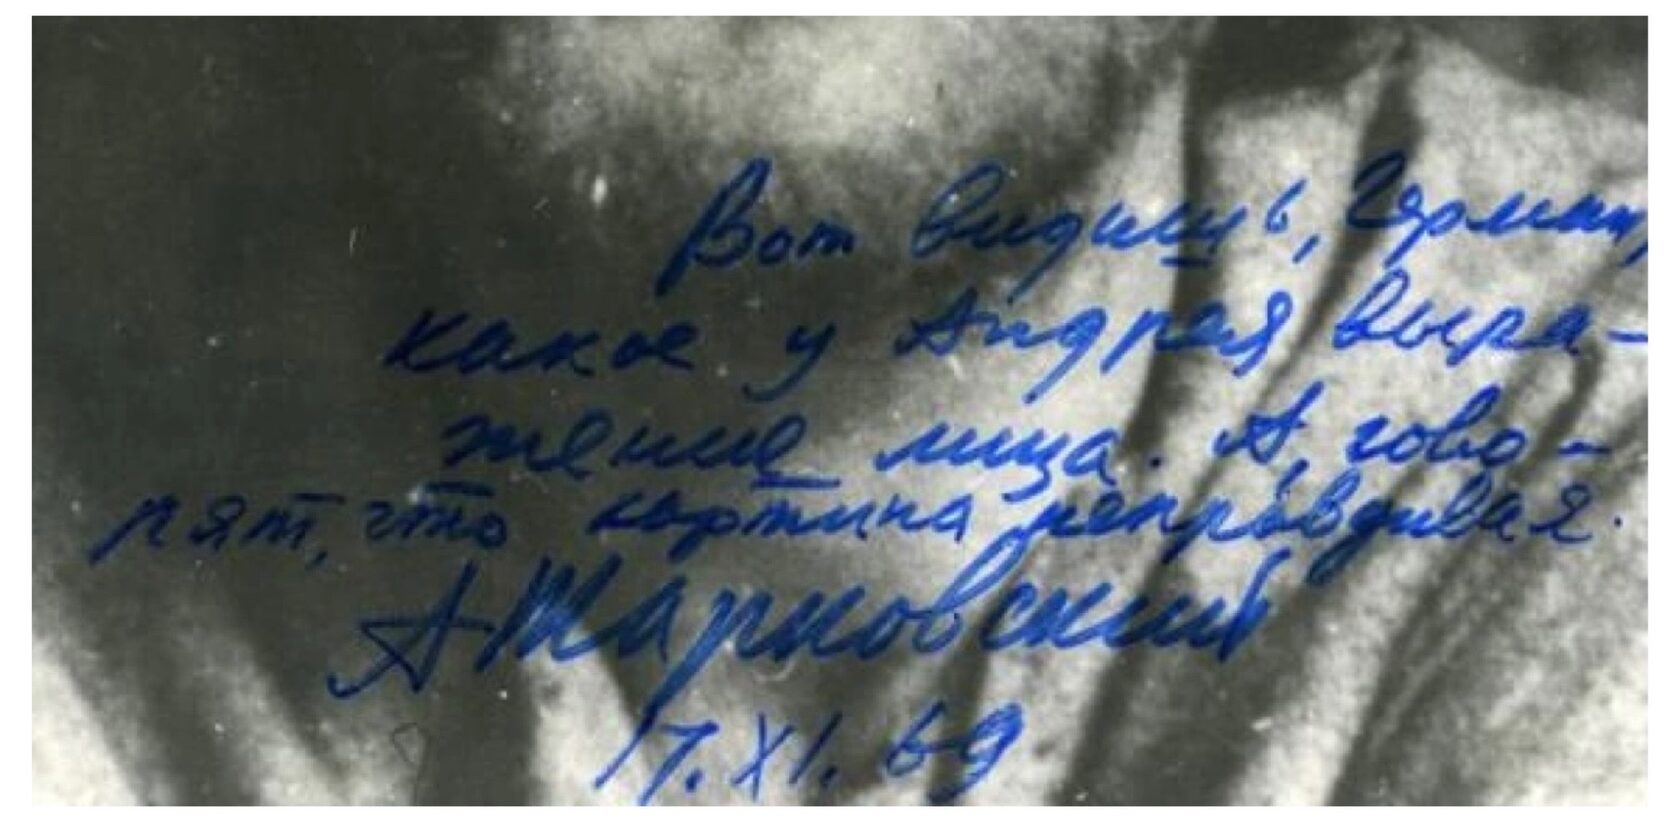 Вот видишь, Герман,
какое у Андрея выра-
жение лица. А, гово-
рят, что картина неправдивая.
А Тарковский
7.XI.69